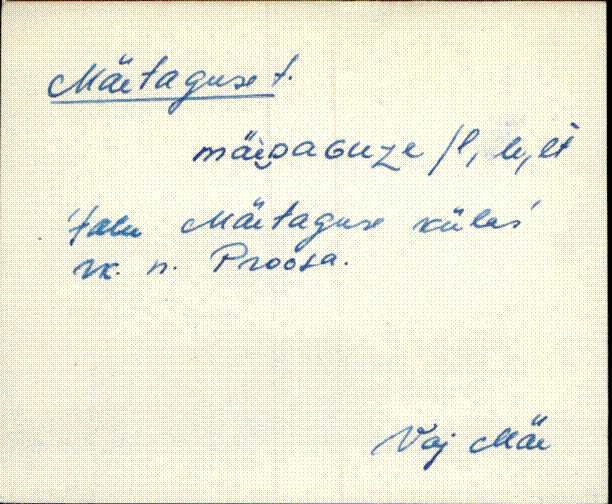 Mäetaguse t.
mäi̯ᴅaɢuze /l, le, lt
'talu Mäetaguse külas'
rk. n. Proosa.
Vaj Mäe